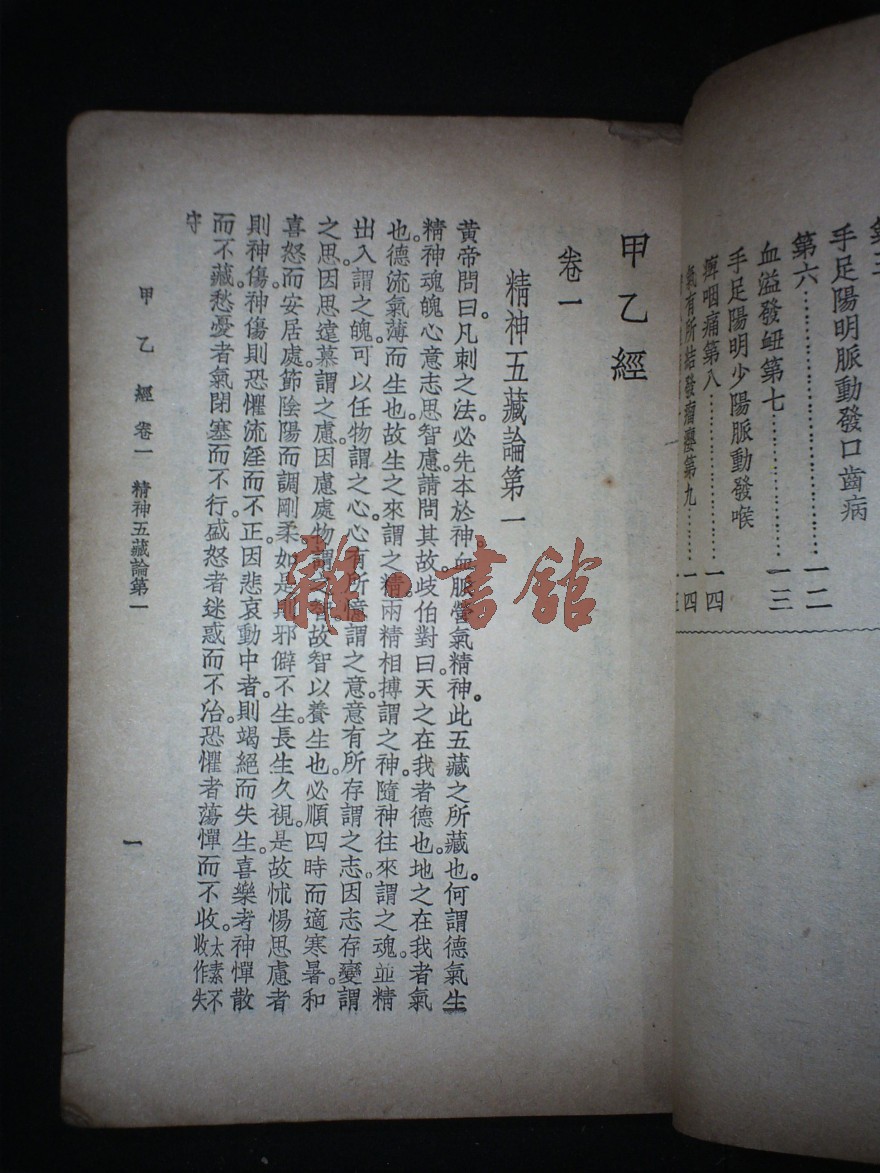 手足陽明脈動發口齒病
第六……………一二
血溢發衄第七……………一三
手足陽明少陽脈動發喉
痺咽痛第八……………一四
氣有所結發瘤癭第九……一四
甲乙經
卷一
精神五藏論第一
黃帝問曰。凡刺之法。必先本於神。血脈營氣精神。此五藏之所藏也。何謂德氣生
精神魂魄心意志思智慮。請問其故。歧伯對曰。天之在我者德也。地之在我者氣
也。德流氣薄而生也。故生之來謂之精。兩精相搏謂之神。隨神往來謂之魂。並精
出入謂之魄。可以任物謂之心。心有所憶謂之意。意有所存謂之志。因志存變謂
之思。因思遠慕謂之慮。因慮處物謂之智。故智以養生也。必順四時而適寒暑。和
喜怒而安居處。節陰陽而調剛柔。如是則邪僻不生。長生久視。是故怵惕思慮者
則神傷。神傷則恐懼流淫而不正。因悲哀動中者。則竭絕而失生。喜樂者神憚散
而不藏。愁憂者氣閉塞而不行。盛怒者迷惑而不治。恐懼者蕩憚而不收。太素不
收作失
守
甲乙經 卷一 精神五藏論第一
一
雜·書館